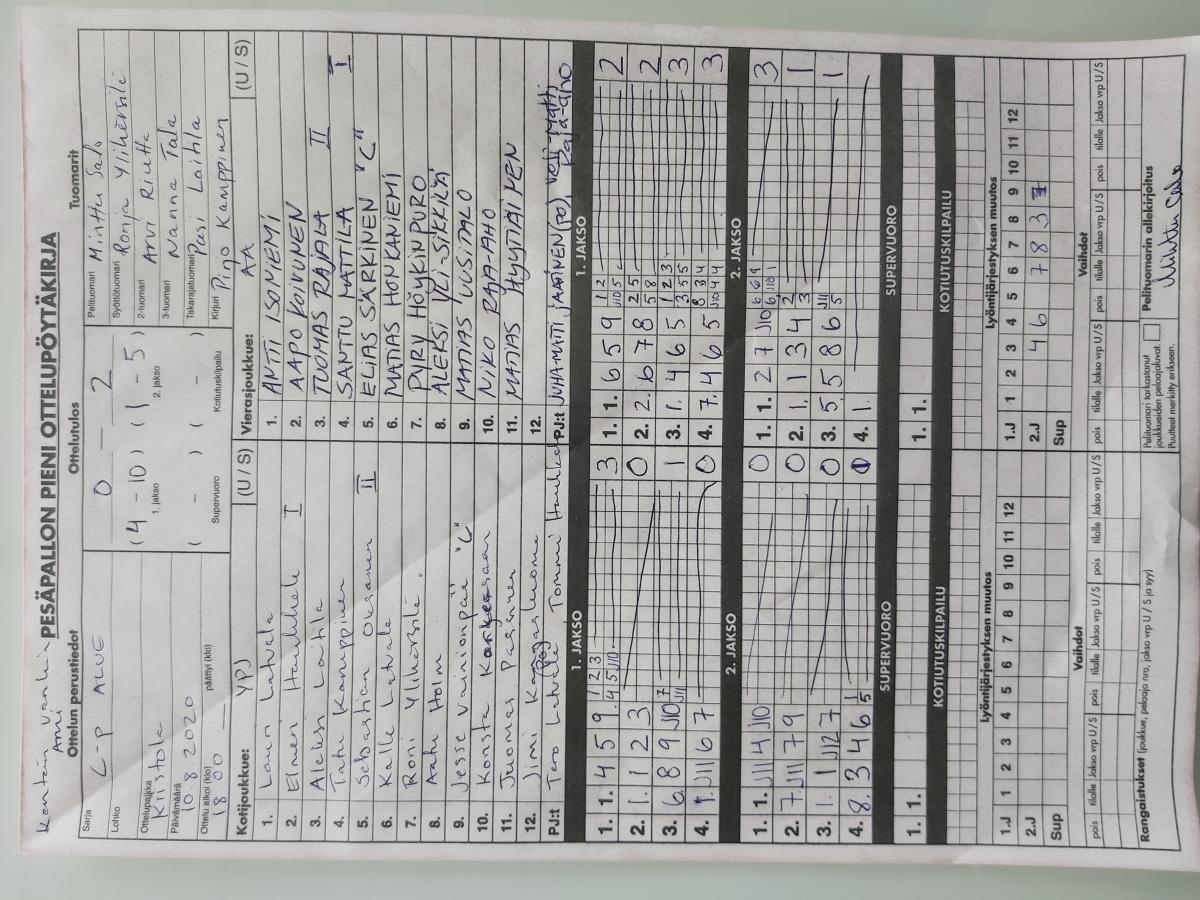 Kentän vanh.
PESÄPALLON PIENI OTTELUPÖYTÄKIRJA
Ottelun perustiedot
Ottelutulos
Tuomarit
Sarja
L-P ALUE
Lohko
Ottelupaikka
Kiistola
Päivämäärä
10.8.2020
Ottelu alkoi (klo)
18 00
päättyi (klo)
0 — 2
(4 - 10) (1 - 5)
1. jakso
2. jakso
( - ) ( - )
Supervuoro
Kotiutuskilpailu
Pelituomari Minttu Salo
Syöttötuomari Ronja Yliherssilä
2-tuomari Arvi Riutta
3-tuomari Nanna Tala
Takarajatuomari Pasi Laitila
Kirjuri Pinjo Kamppinen
Kotijoukkue: YPJ (U / S)
1. Lauri Latvala
2. Elmeri Haukkala I
3. Aleksi Laitila
4. Tatu Kamppinen
5. Sebastian Oksanen II
6. Kalle Latvala
7. Roni
8. Aatu Holm
9. Jesse Vainionpää "C"
10. Konsta
11. Juomas Pasanen
12. Jimi
PJ:t Tero Latvala Tommi Haukkala
Vierasjoukkue: AA (U / S)
1. ANTTI ISONIEMI
2. AAPO KOIVUNEN
3. TUOMAS RAJALA II
4. SANTTU MATTILA I
5. ELIAS SÄRKINEN "C"
6. MATIAS HONKANIEMI
7. PYRY HÖYKINPURO
8. ALEKSI YLI-SIKKILÄ
9. MATIAS UUSITALO
10. NIKO RAJA-AHO
11. MATIAS HYYTIÄINEN
12.
PJ:t JUHA-MATTI JAAKKOLA
1. JAKSO
1. JAKSO
1. 1. 4 5 9 1 2 3 4 5 J10 3
2. 1. 1 2 3 0
3. 6. 8 9 J10 7 J11 1
4. 1. J11 6 7 0
1. 1. 6 5 9 1 2 J10 5 2
2. 2. 6 7 8 2 5 5 8 2
3. 1. 4 6 5 1 2 3 3 5 5 3
4. 7. 4 6 5 8 3 4 J10 4 4 3
2. JAKSO
2. JAKSO
1. 1. J11 4 J10 0
2. 7. J11 7 9 0
3. 1. 1 J12 7 0
4. 8. 3 4 6 1 5 1
1. 1. 2 7 J10 6 6 9 6 J10 1 3
2. 1. 1 3 4 2 3 1
3. 5. 5 8 6 J11 5 1
4. 1.
SUPERVUORO
SUPERVUORO
1. 1.
1. 1.
KOTIUTUSKILPAILU
KOTIUTUSKILPAILU
Lyöntijärjestyksen muutos
Lyöntijärjestyksen muutos
1.J 1 2 3 4 5 6 7 8 9 10 11 12
2.J
Sup
1.J 1 2 3 4 5 6 7 8 9 10 11 12
2.J 4 6 7 8 3
Sup
Vaihdot
Vaihdot
pois tilalle Jakso vrp U/S pois tilalle Jakso vrp U/S pois tilalle Jakso vrp U/S
pois tilalle Jakso vrp U/S pois tilalle Jakso vrp U/S pois tilalle Jakso vrp U/S
Rangaistukset (joukkue, pelaaja nro, jakso vrp U / S ja syy)
Pelituomari tarkastanut
joukkueiden pelaajaluvat.
Puutteet merkitty erikseen.
Pelituomarin allekirjoitus
Minttu Salo